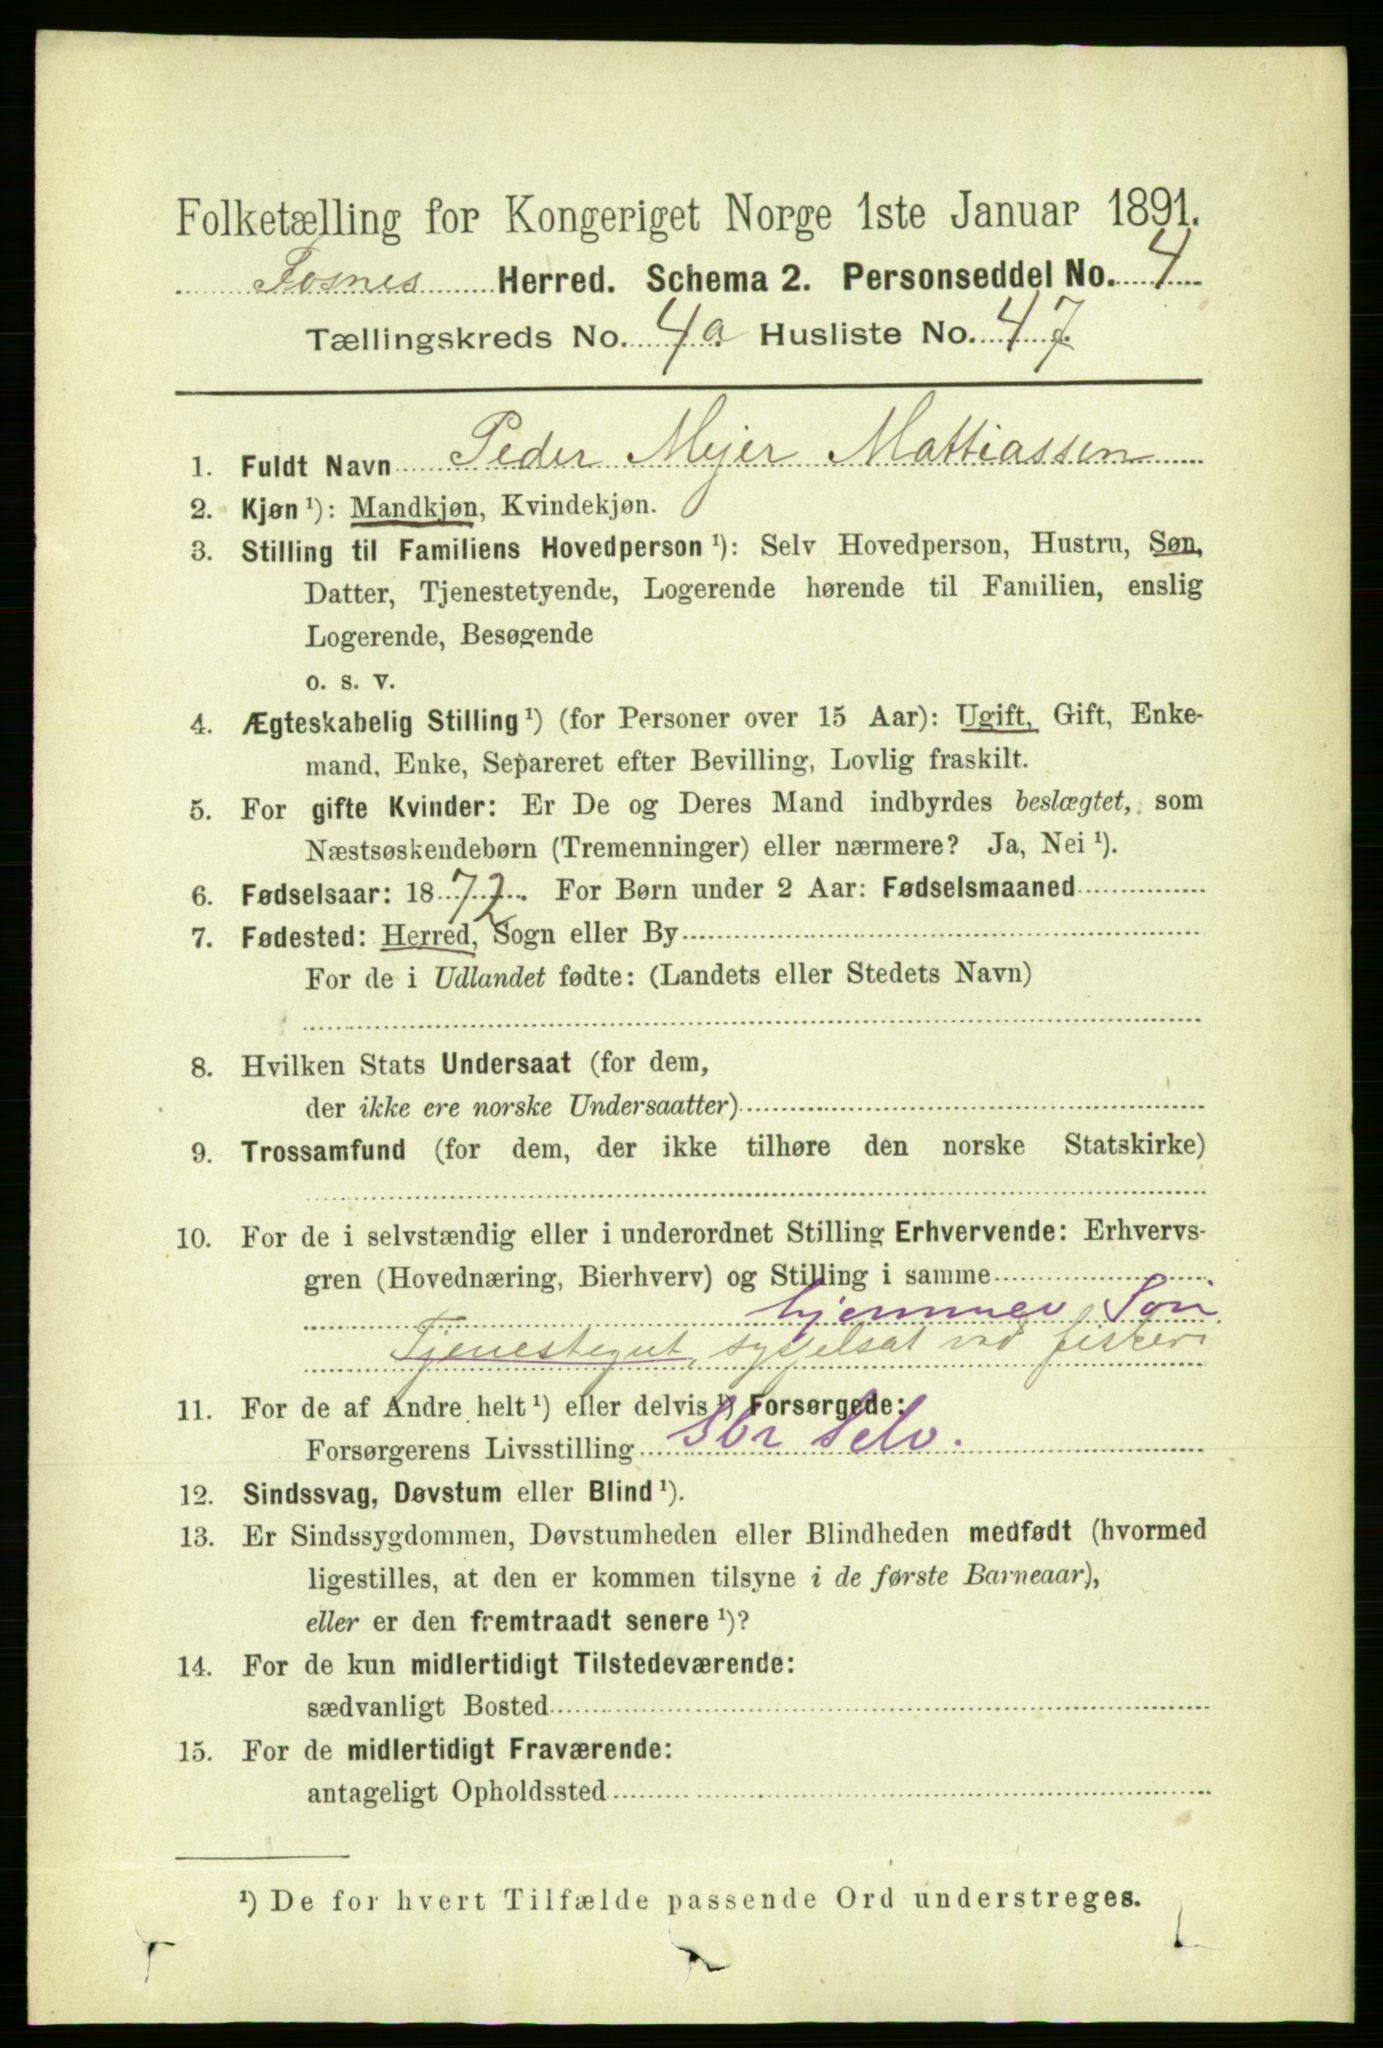 Folketælling for Kongeriget Norge 1ste Januar 1891.
Fosnes Herred. Schema 2. Personseddel No. 4
Tællingskreds No. 4a Husliste No. 47.
1. Fuldt Navn Peder Mejer Mattiassen
2. Kjøn ¹): Mandkjøn, Kvindekjøn.
3. Stilling til Familiens Hovedperson ¹): Selv Hovedperson, Hustru, Søn,
Datter, Tjenestetyende, Logerende hørende til Familien, enslig
Logerende, Besøgende
o. s. v.
4. Ægteskabelig Stilling ¹) (for Personer over 15 Aar): Ugift, Gift, Enke-
mand, Enke, Separeret efter Bevilling, Lovlig fraskilt.
5. For gifte Kvinder: Er De og Deres Mand indbyrdes beslægtet, som
Næstsøskendebørn (Tremenninger) eller nærmere? Ja, Nei ¹).
6. Fødselsaar: 1872. For Børn under 2 Aar: Fødselsmaaned
7. Fødested: Herred, Sogn eller By
For de i Udlandet fødte: (Landets eller Stedets Navn)
8. Hvilken Stats Undersaat (for dem,
der ikke ere norske Undersaatter)
9. Trossamfund (for dem, der ikke tilhøre den norske Statskirke)
10. For de i selvstændig eller i underordnet Stilling Erhvervende: Erhvervs-
gren (Hovednæring, Bierhverv) og Stilling i samme
hjemmev. Søn
Tjenestegut, sysselsat ved fiskeri
11. For de af Andre helt ¹) eller delvis ¹) Forsørgede:
Forsørgerens Livsstilling Sbr Selv.
12. Sindssvag, Døvstum eller Blind ¹).
13. Er Sindssygdommen, Døvstumheden eller Blindheden medfødt (hvormed
ligestilles, at den er kommen tilsyne i de første Barneaar),
eller er den fremtraadt senere ¹)?
14. For de kun midlertidigt Tilstedeværende:
sædvanligt Bosted
15. For de midlertidigt Fraværende:
antageligt Opholdssted
¹) De for hvert Tilfælde passende Ord understreges.